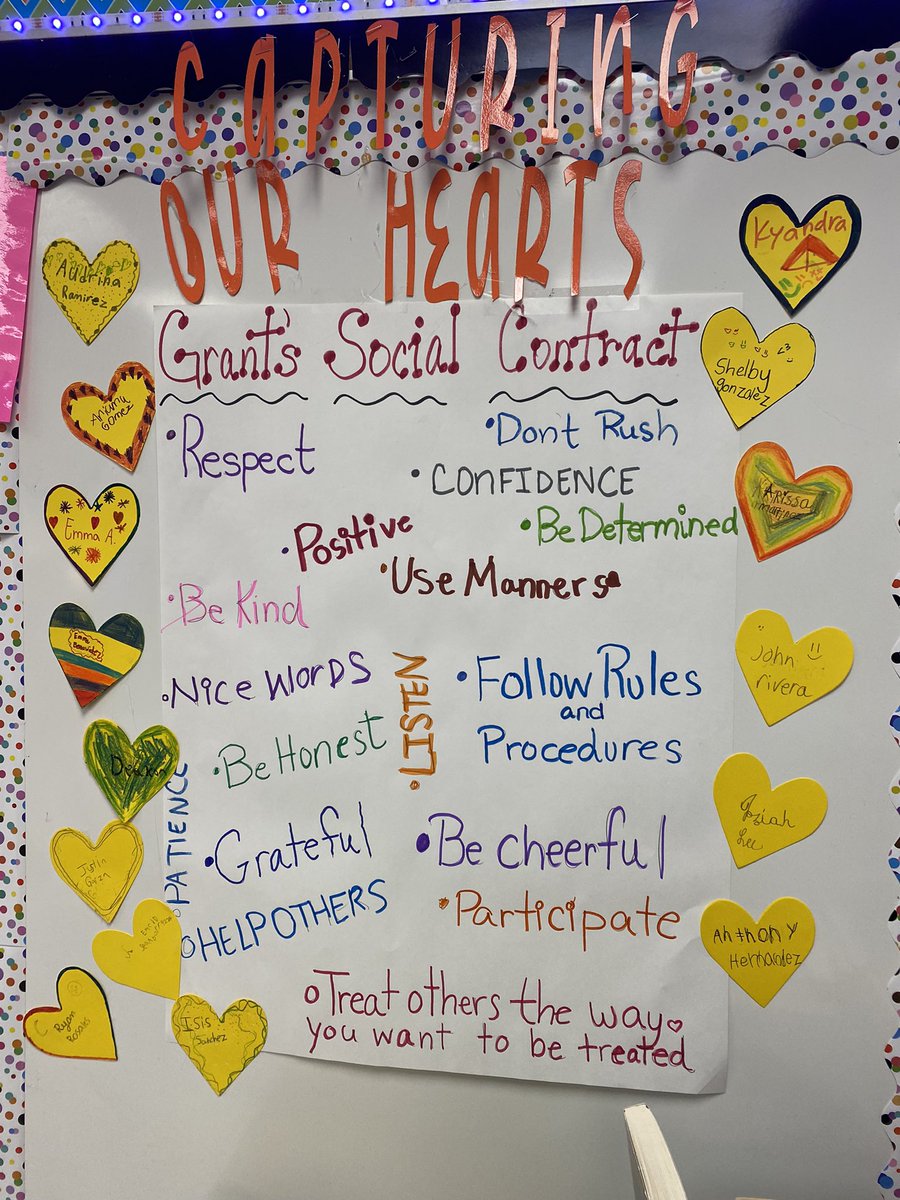 CAPTURING
OUR HEARTS
Grant's Social Contract
Respect
Dont Rush
CONFIDENCE
Positive
Be Determined
Use Manners
Be Kind
NICE WORDS
LISTEN
Follow Rules
and
Procedures
Be Honest
PATIENCE
Grateful
Be cheerful
HELP OTHERS
Participate
Treat others the way
you want to be treated
Audrina
Ramirez
Gomez
Emma A.
Emma
Benavidez
Justin
Garza
Ryan
Rosales
ISIS
Sanchez
Kyandra
Shelby
gonzalez
<3
Arissa
martinez
John
rivera
Lui
Anthony
Hernandez